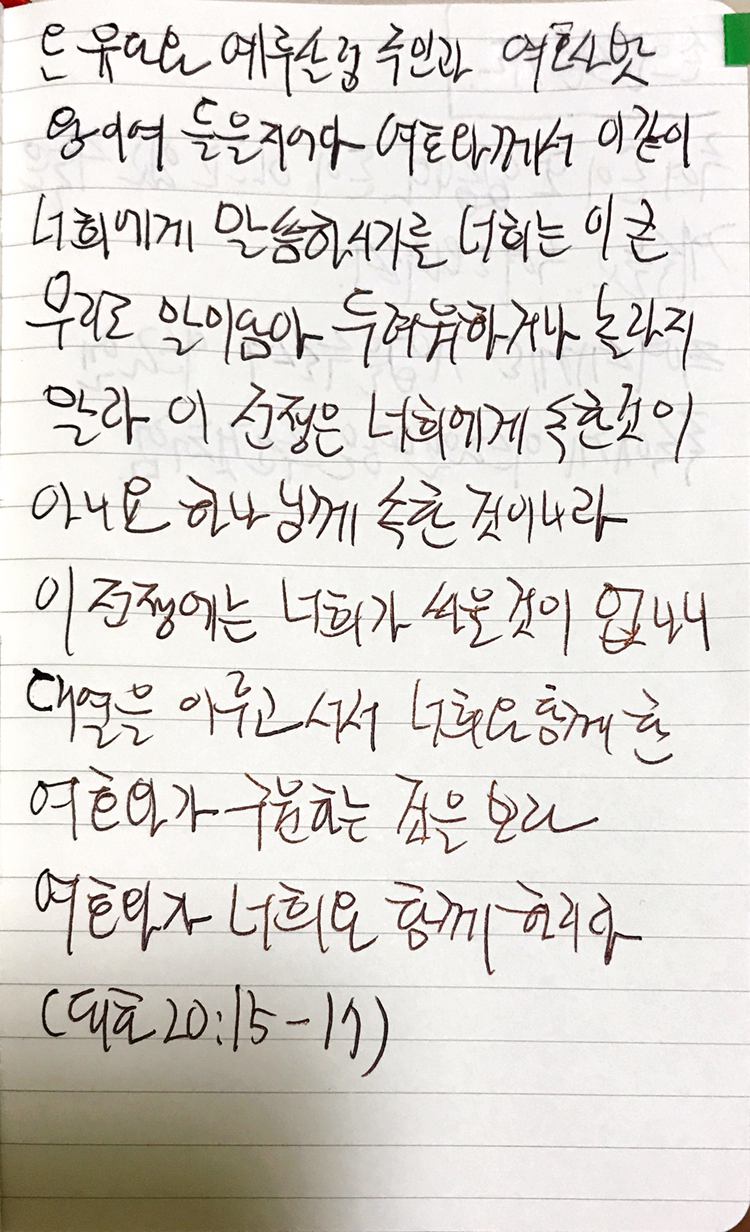 온 유다와 예루살렘 주민과 여호사밧
왕이여 들을지어다 여호와께서 이같이
너희에게 말씀하시기를 너희는 이 큰
무리로 말미암아 두려워하거나 놀라지
말라 이 전쟁은 너희에게 속한것이
아니요 하나님께 속한 것이니라
이 전쟁에는 너희가 싸울것이 없나니
대열을 이루고 서서 너희와함께 한
여호와가 구원하는 것을 보라
여호와가 너희와 함께 하리라
(대하20:15-17)